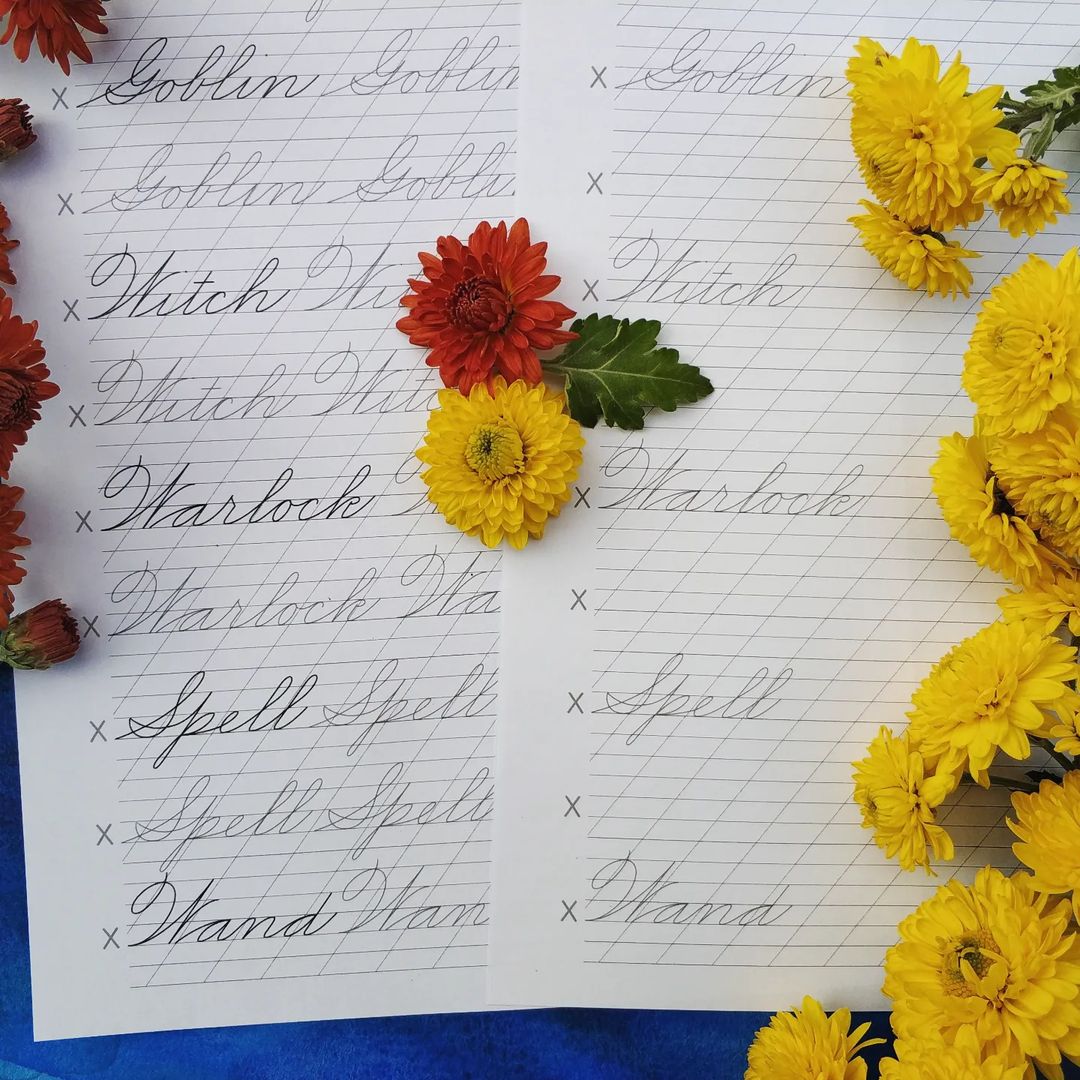 x Goblin Goblin
x Goblin Gobli
x Witch Wi
x Witch Wit
x Warlock
x Warlock Wa
x Spell Spell
x Spell Spell
x Wand Wan
x Goblin
x
x Witch
x Warlock
x
x Spell
x
x Wand